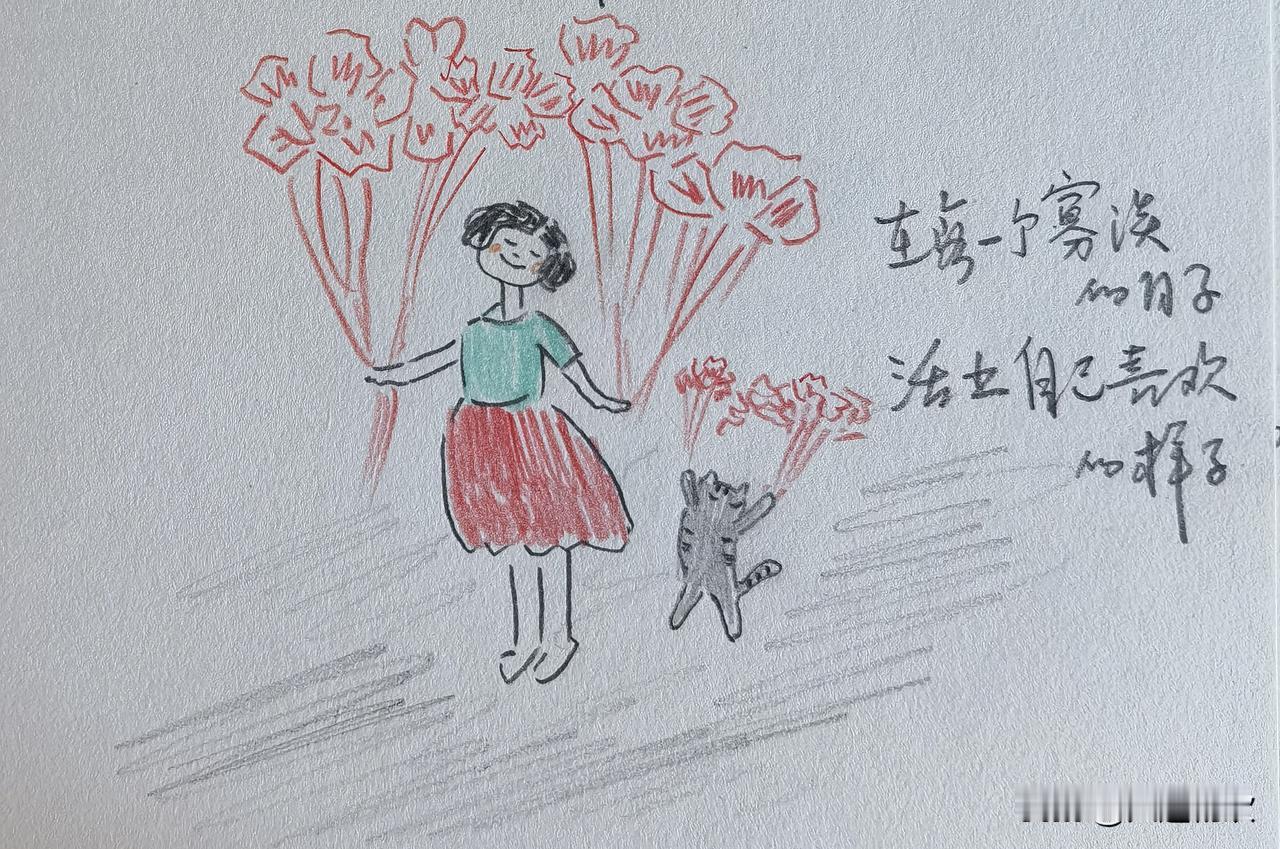 在每一个寡淡
的日子
活出自己喜欢
的样子